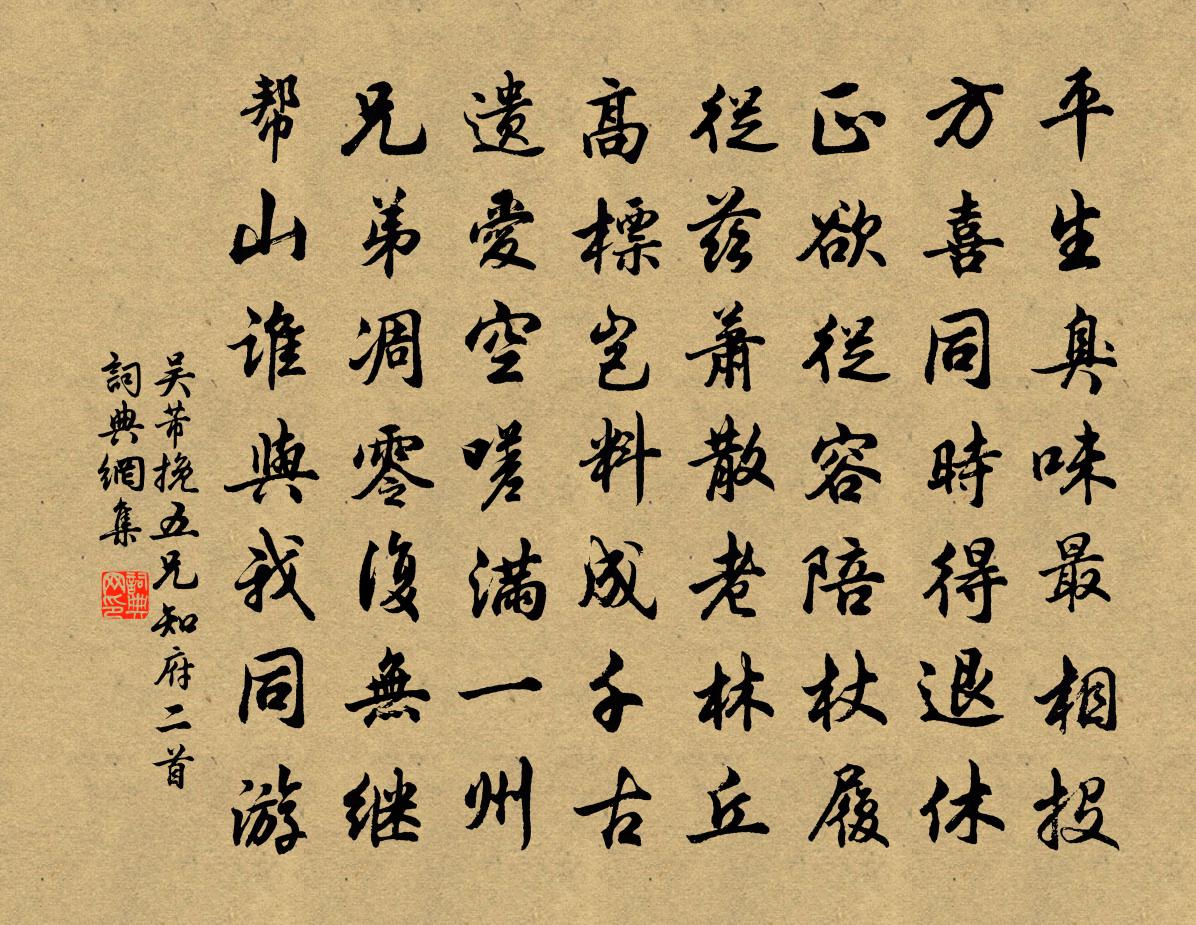 平生臭味最相投
方喜同時得退休
正欲從容陪杖履
從茲蕭散老林丘
高標豈料成千古
遺愛空嗟满一州
兄弟凋零復無継
帮山誰與我同游
吴芾挽五兄知府二首
詞典網集
詞典网印